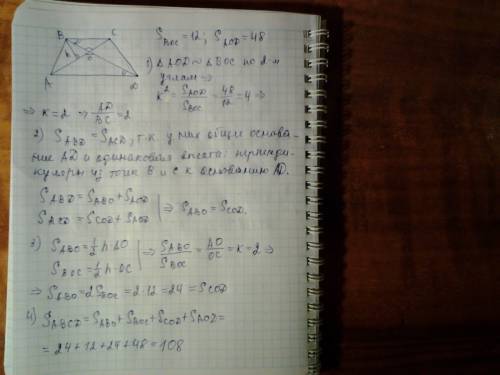 B C
O
h
A D
S_BOC = 12; S_AOD = 48
1) Δ AOD ∼ Δ BOC по 2-м
углам ⇒
k² = S_AOD/S_BOC = 48/12 = 4 ⇒
⇒ k = 2 ⇒ AD/BC = 2
2) S_ABD = S_ACD, т.к. у них общее основа-
ние AD и одинаковая высота: перпенди-
куляры из точк B и C к основанию AD.
S_ABD = S_ABO + S_AOD
S_ACD = S_COD + S_AOD | ⇒ S_ABO = S_COD.
3) S_ABO = 1/2 h·AO
S_BOC = 1/2 h·OC | ⇒ S_ABO/S_BOC = AO/OC = k = 2 ⇒
⇒ S_ABO = 2S_BOC = 2·12 = 24 = S_COD
4) S_ABCD = S_ABO + S_BOC + S_COD + S_AOD =
= 24 + 12 + 24 + 48 = 108